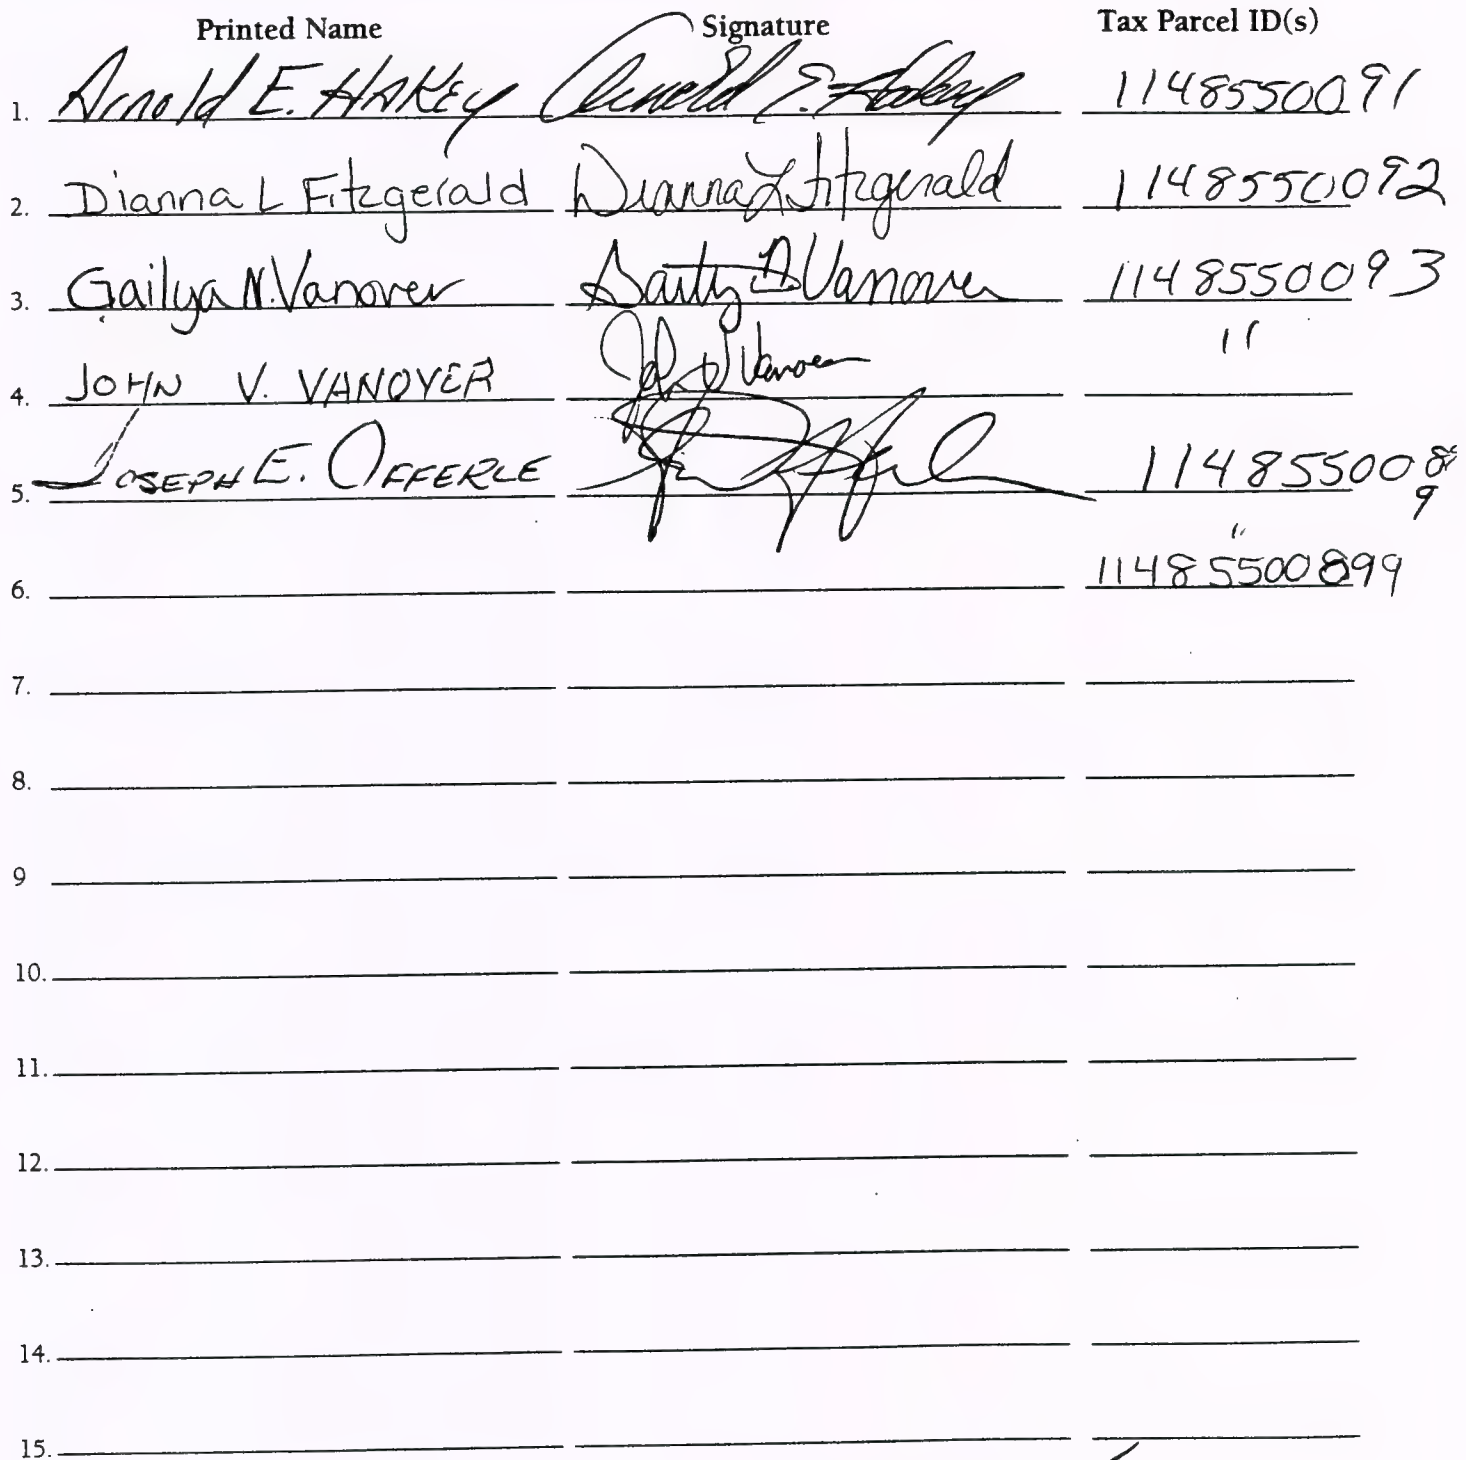 Printed Name Signature Tax Parcel ID(s)
1. Arnold E. HAKEY Arnold E. Hakey 1148550091
2. Dianna L Fitzgerald Dianna L Fitzgerald 1148550092
3. Gailya N. Vanover Vanover 1148550093
4. JOHN V. VANOVER John V Vanover "
5. JOSEPH E. OFFERLE 114855008
9
"
6. 11485500899
7.
8.
9
10.
11.
12.
13.
14.
15.